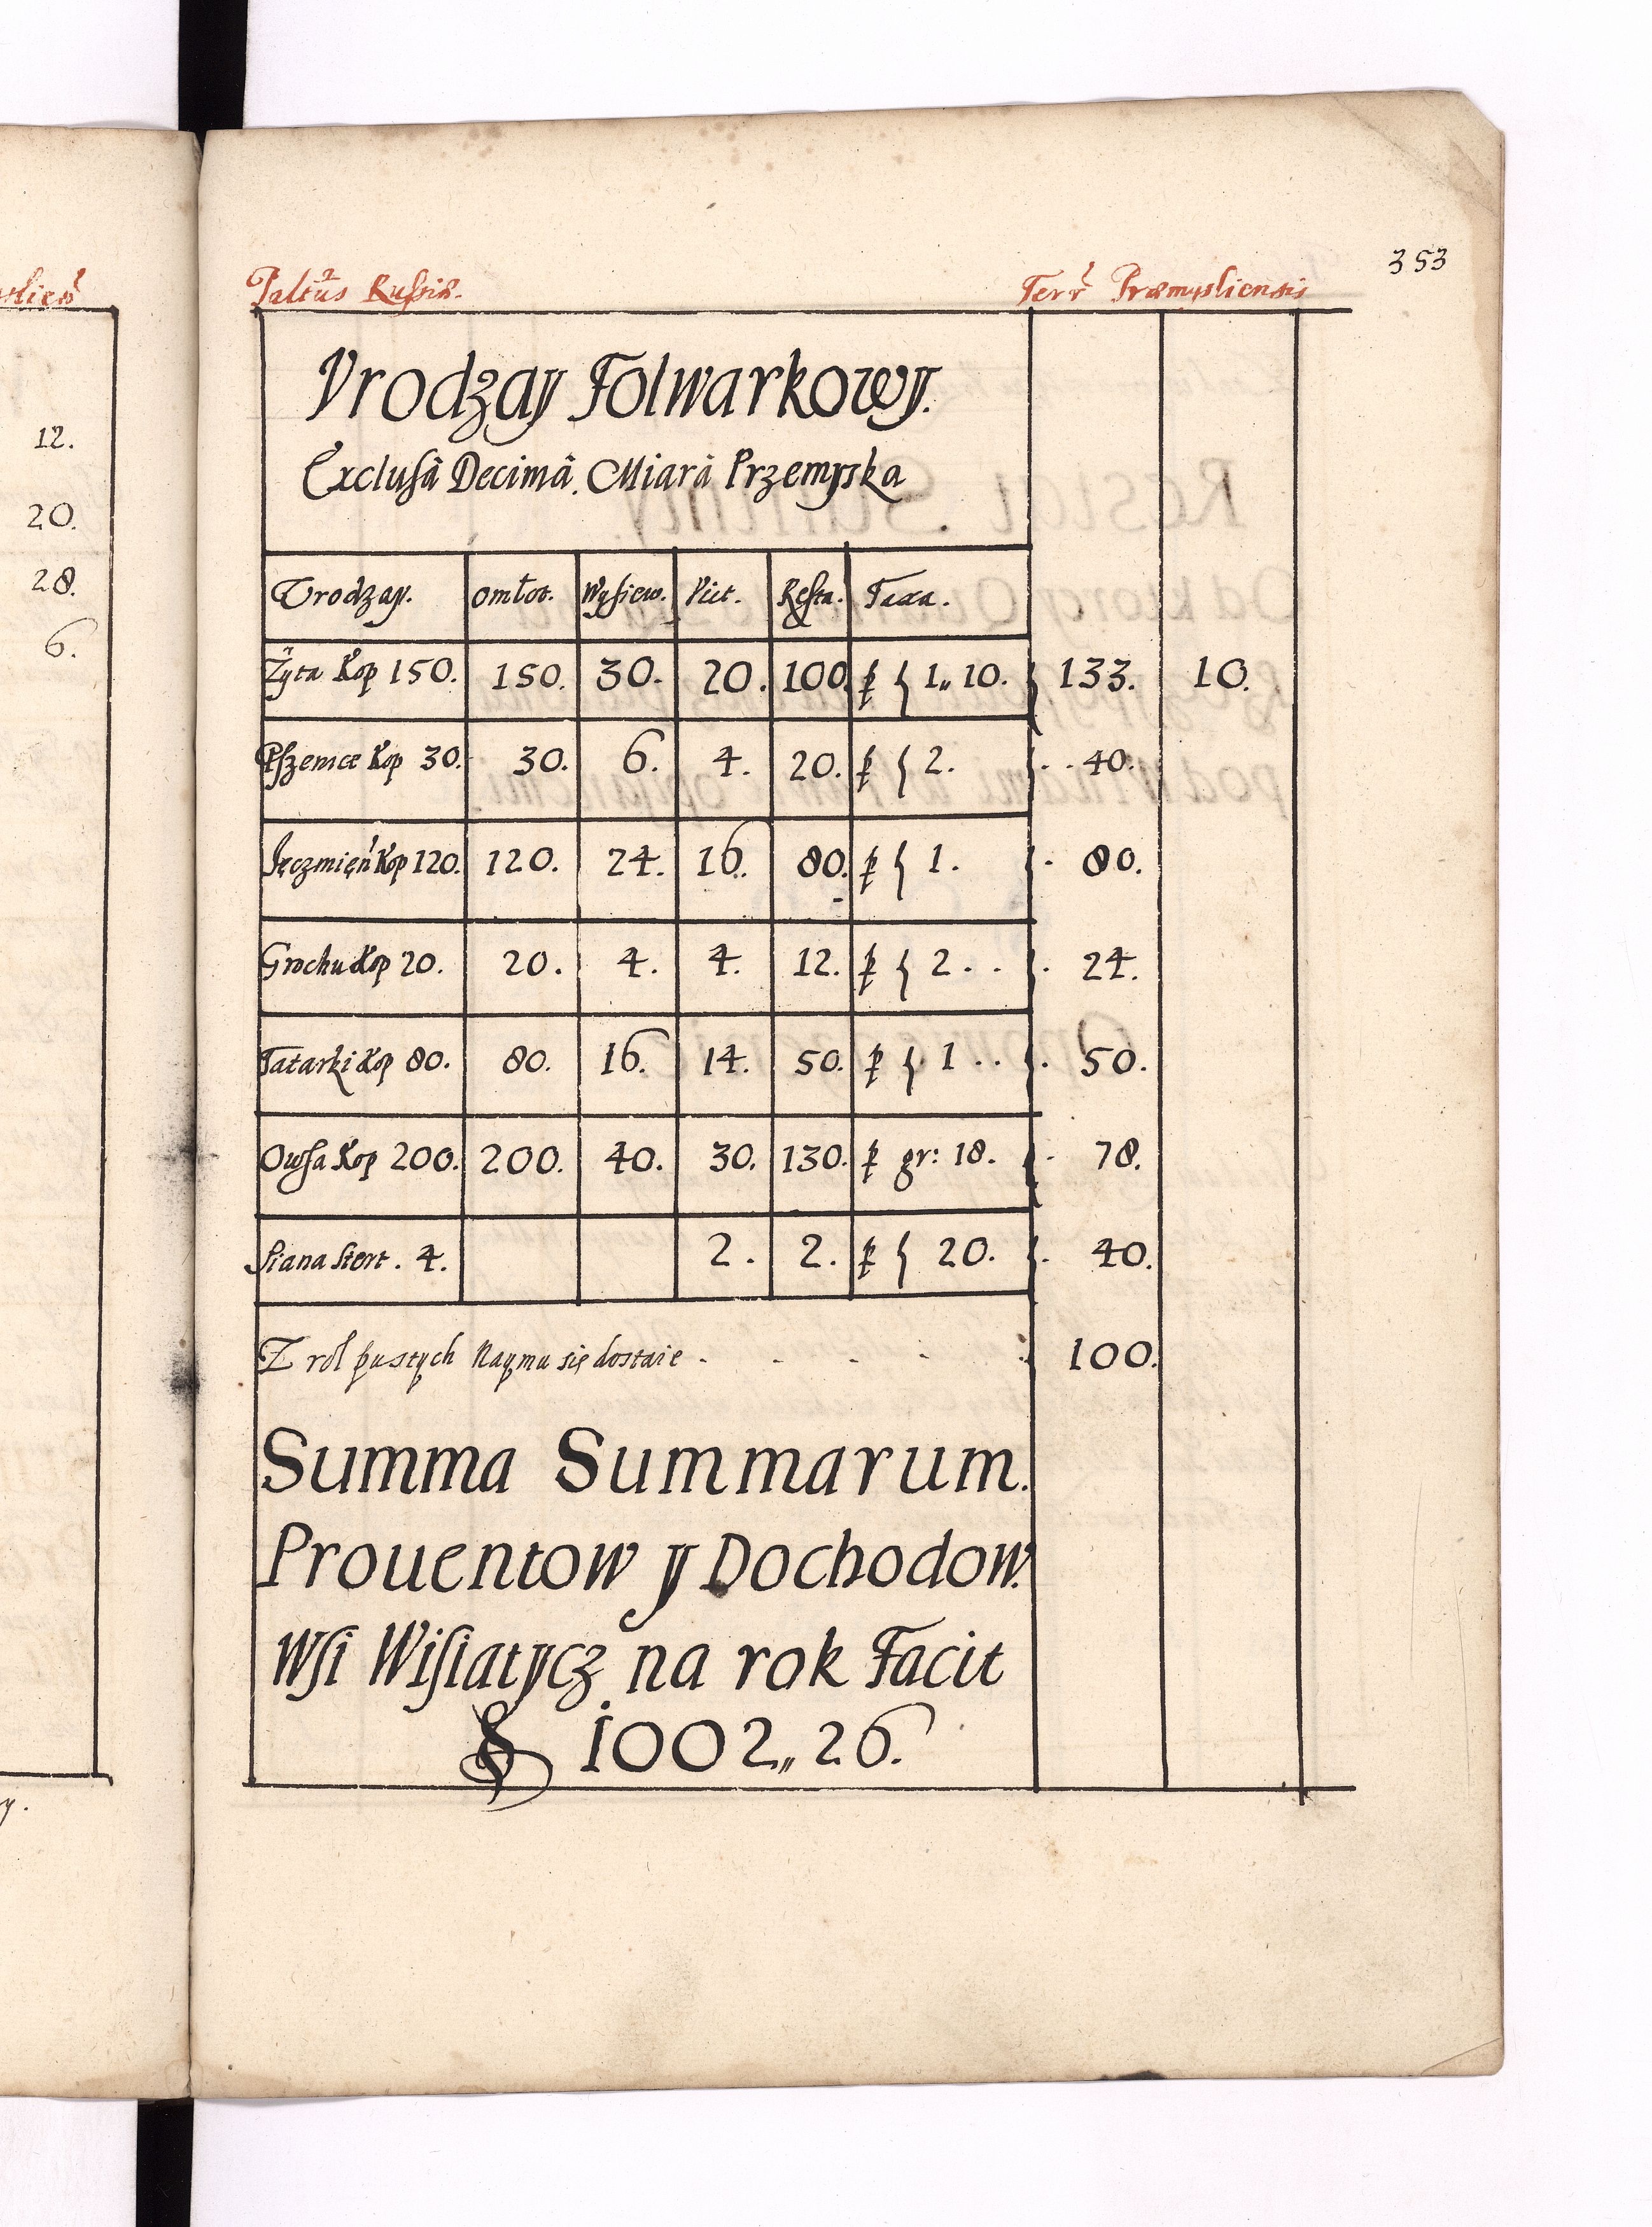 353
Paltũs Russiæ. Terř Præmysliensis
Vrodzay Folwarkowy.
Exclusâ Decimâ. Miarâ Przemyska
12.
20.
28.
6.
Vrodzay. omłot. Wysiew. Vict. Resta. Taxa.
Żyta Kop 150. 150. 30. 20. 100. 1„ 10. 133. 10.
Pszenice Kop 30. 30. 6. 4. 20. 2. 40.
Jęczmień Kop 120. 120. 24. 16. 80. 1. 80.
Grochu Kop 20. 20. 4. 4. 12. 2. 24.
Tatarki Kop 80. 80. 16. 14. 50. 1. 50.
Owsa Kop 200. 200. 40. 30. 130. gr: 18. 78.
Siana Stert. 4. 2. 2. 20. 40.
Z ról pustych Naymu się dostaie 100.
Summa Summarum.
Prouentow y Dochodow.
Wsi Wisiatycz na rok Facit
1002„ 26.